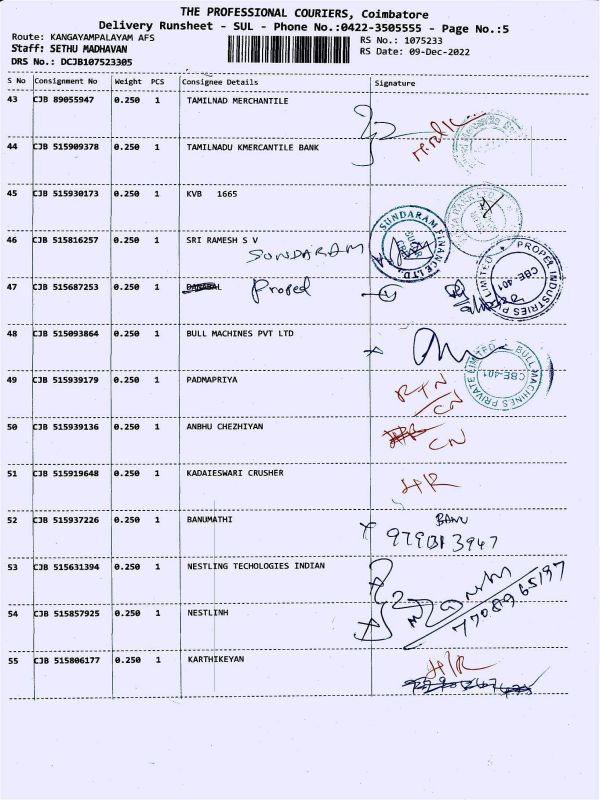 THE PROFESSIONAL COURIERS, Coimbatore
Delivery Runsheet - SUL - Phone No.:0422-3505555 - Page No.:5
Route: KANGAYAMPALAYAM AFS
RS No.: 1075233
Staff: SETHU MADHAVAN
RS Date: 09-Dec-2022
DRS No.: DCJB107523305
S No Consignment No Weight PCS Consignee Details Signature
43 CJB 89055947 0.250 1 TAMILNAD MERCHANTILE
44 CJB 515909378 0.250 1 TAMILNADU KMERCANTILE BANK
45 CJB 515930173 0.250 1 KVB 1665
46 CJB 515816257 0.250 1 SRI RAMESH S V
SUNDARAM
SUNDARAM FINANCE LTD.
47 CJB 515687253 0.250 1 Propel
PROPEL INDUSTRIES PRIVATE LIMITED
CBE-401
48 CJB 515093864 0.250 1 BULL MACHINES PVT LTD
BULL MACHINES PRIVATE LIMITED
CBE-401
49 CJB 515939179 0.250 1 PADMAPRIYA
RTN
CN
50 CJB 515939136 0.250 1 ANBHU CHEZHIYAN CN
51 CJB 515919648 0.250 1 KADAIESWARI CRUSHER
52 CJB 515937226 0.250 1 BANUMATHI BANU
53 CJB 515631394 0.250 1 NESTLING TECHOLOGIES INDIAN
54 CJB 515857925 0.250 1 NESTLINH
55 CJB 515806177 0.250 1 KARTHIKEYAN